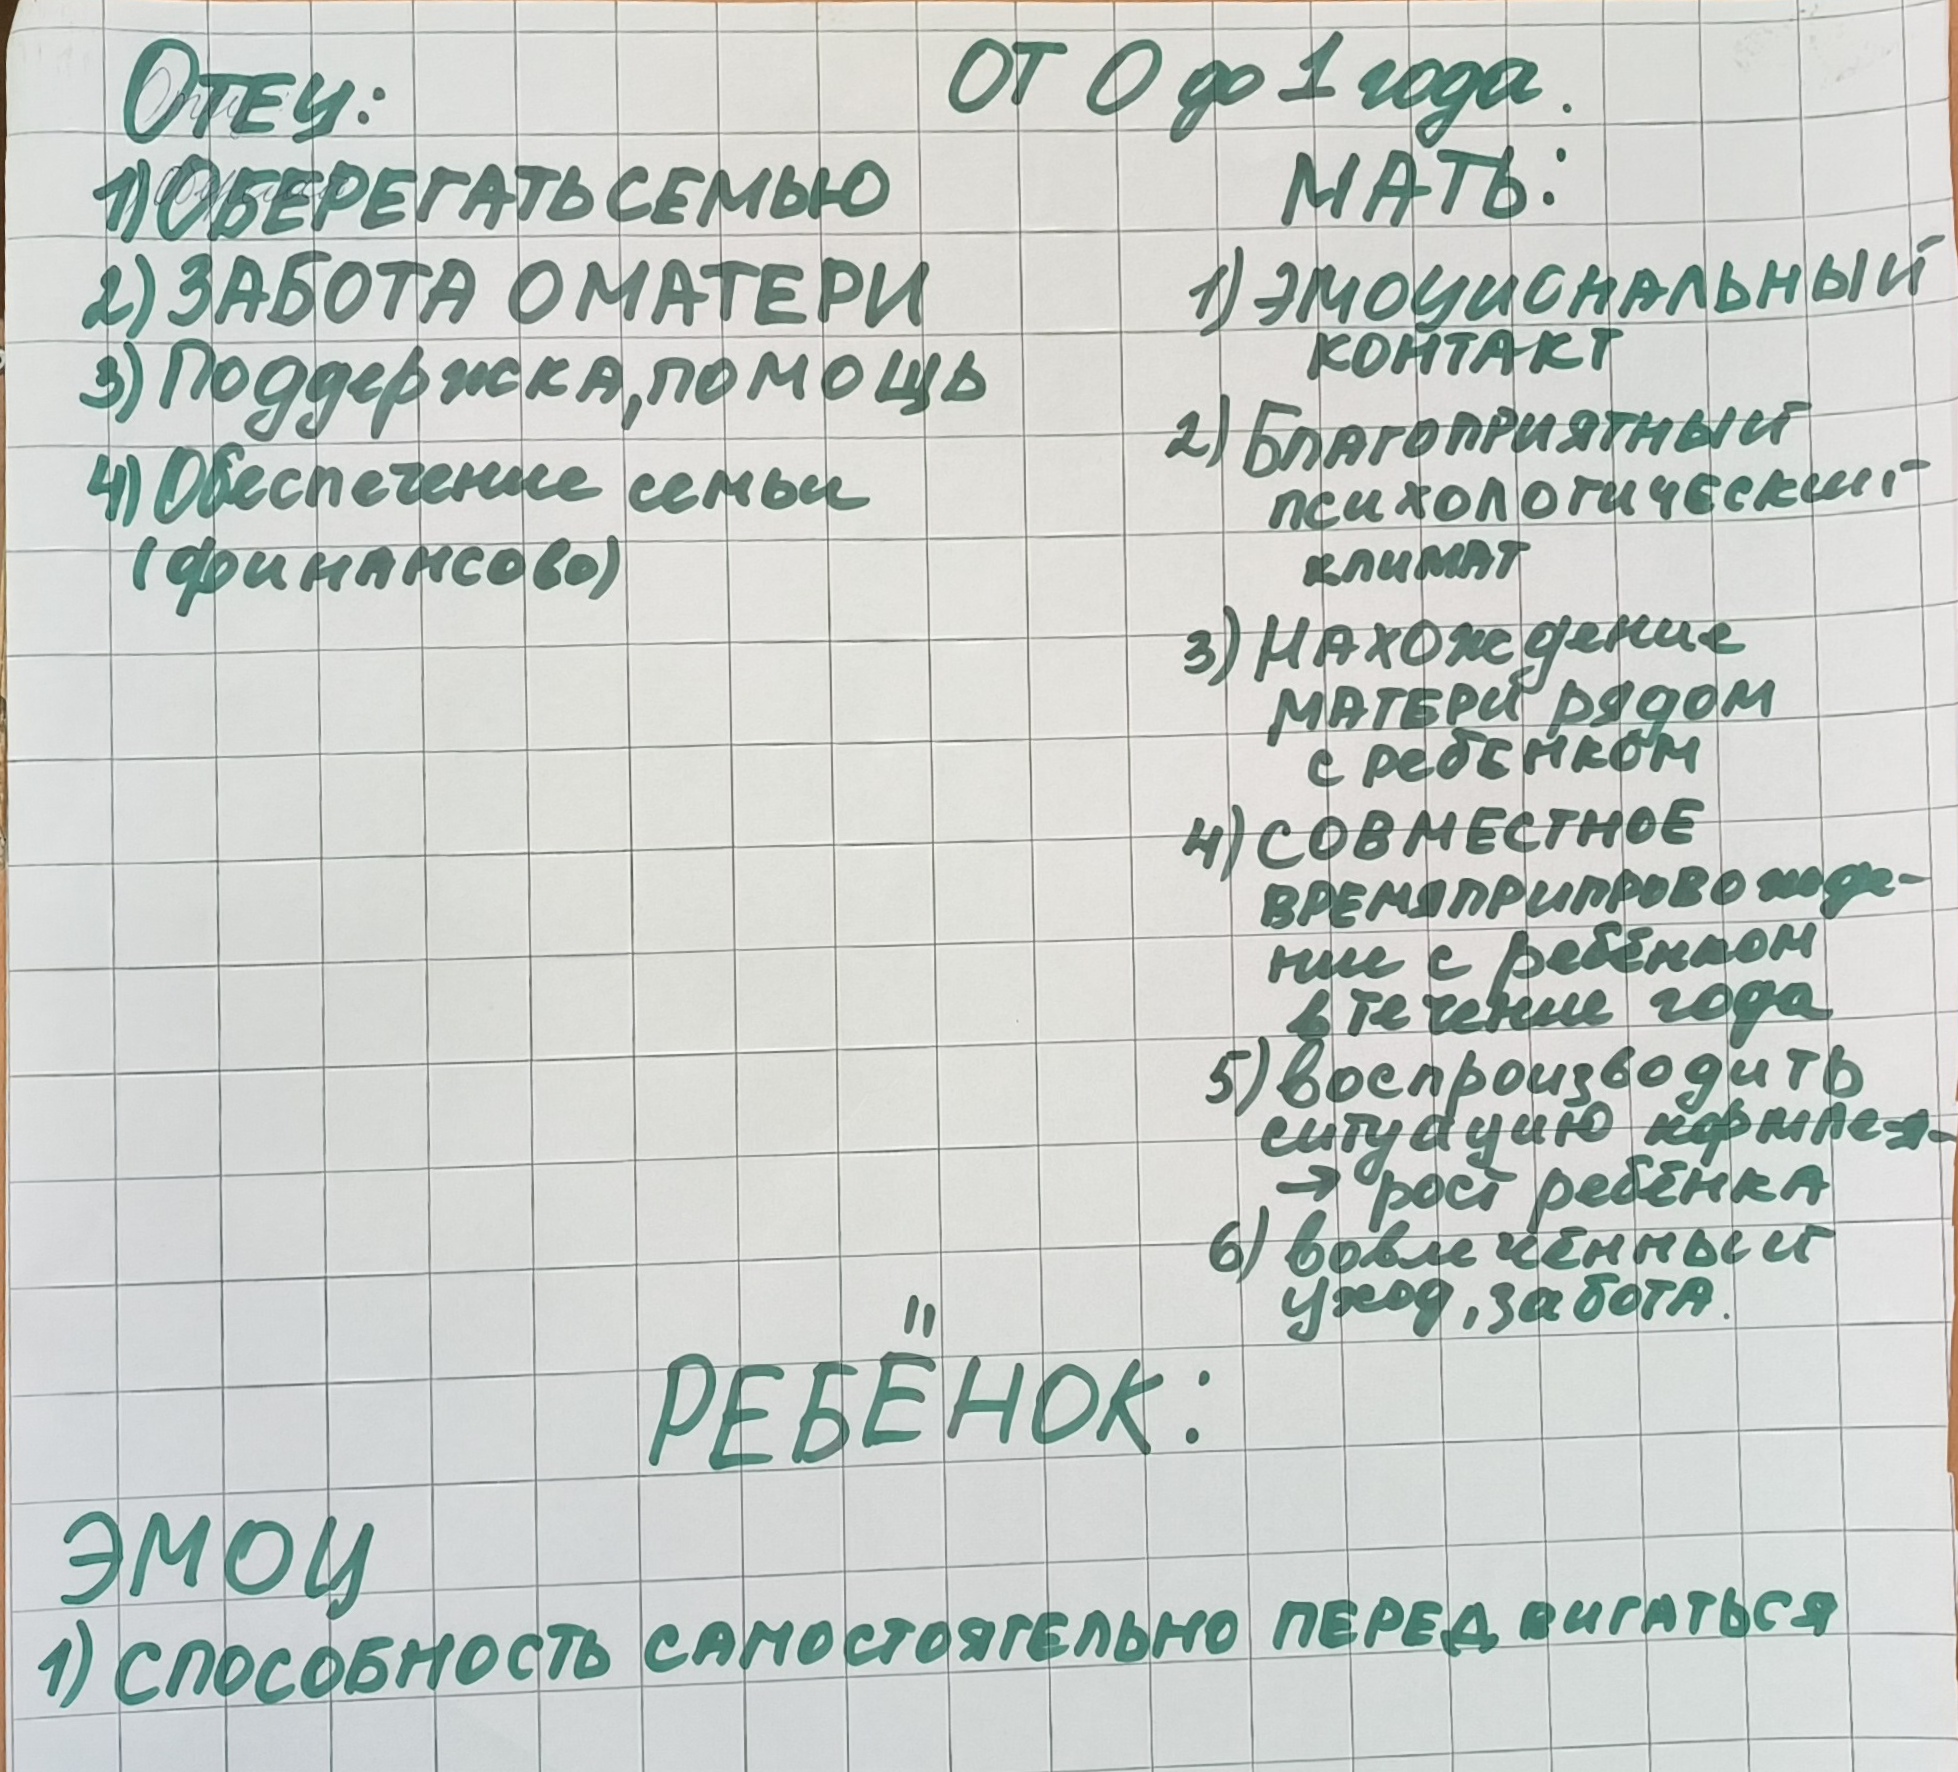 ОТ 0 до 1 года.
ОТЕЦ:
1) ОБЕРЕГАТЬ СЕМЬЮ
2) ЗАБОТА О МАТЕРИ
3) Поддержка, помощь
4) Обеспечение семьи
(финансово)
МАТЬ:
1) ЭМОЦИОНАЛЬНЫЙ
КОНТАКТ
2) Благоприятный
психологический
климат
3) Нахождение
матери рядом
с ребенком
4) СОВМЕСТНОЕ
времяприпровожде-
ние с ребёнком
в течение года
5) воспроизводить
ситуацию
→ рост ребёнка
6) вовлечённый
уход, забота.
"
РЕБЁНОК:
ЭМОЦ
1) СПОСОБНОСТЬ САМОСТОЯТЕЛЬНО ПЕРЕДВИГАТЬСЯ